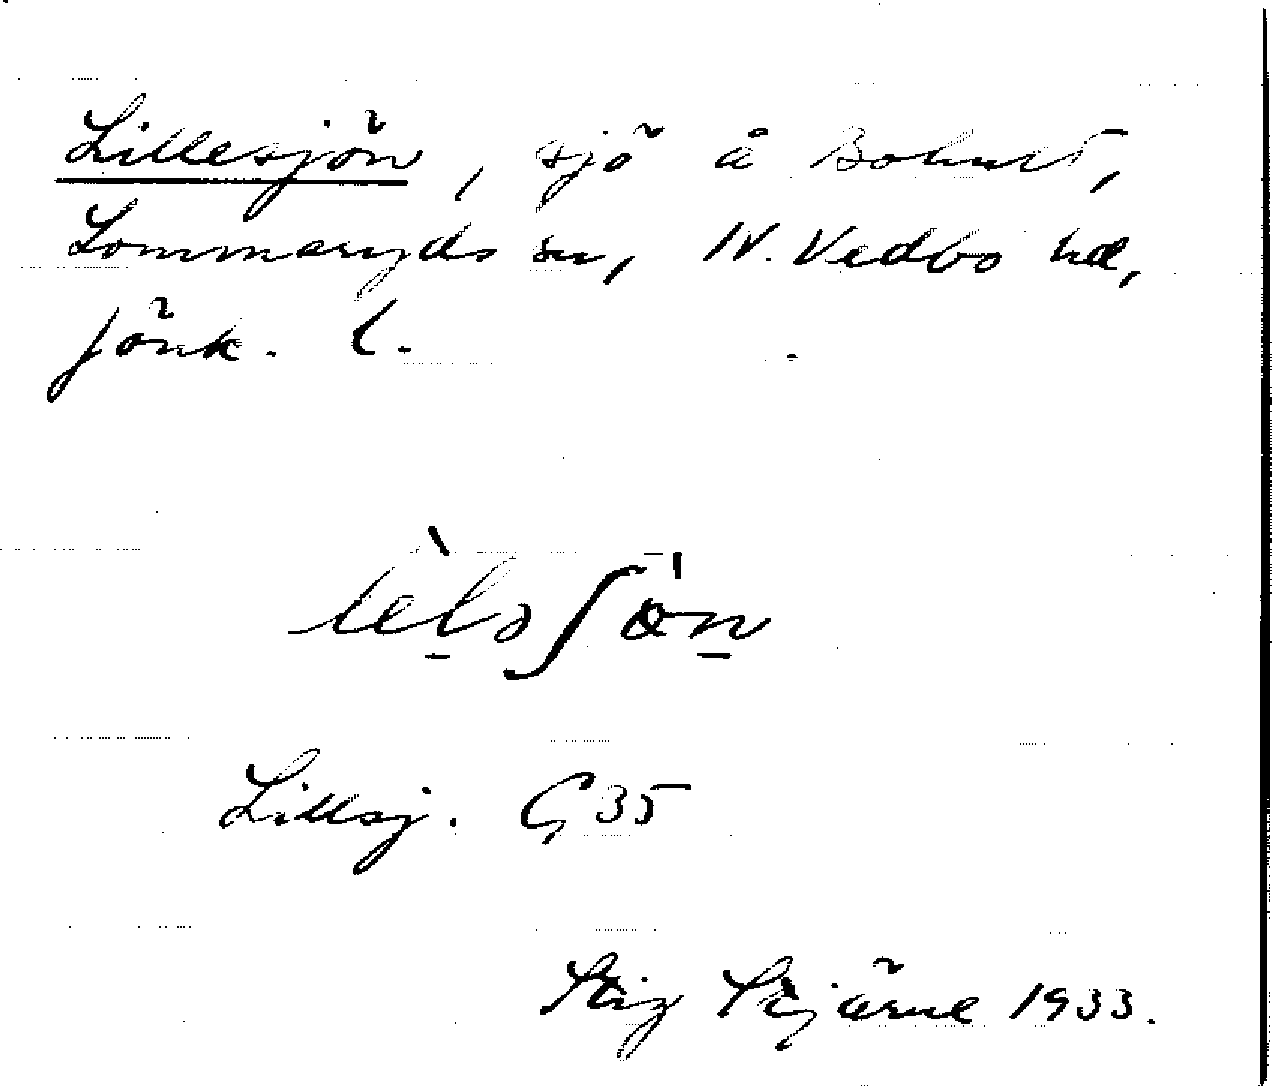 Lillesjön, sjö å Bohult,
Lommaryds sn, N. Vedbo hd,
Jönk. l.
Lillsj. G 35
Stig Stjärne 1933.